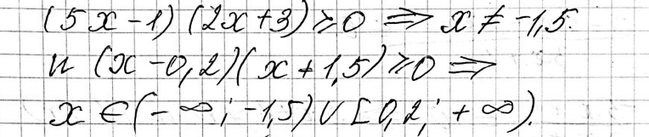 (5x-1)(2x+3)⩾0 ⟹ x≠-1,5.
и (x-0,2)(x+1,5)⩾0 ⟹
x∈(-∞;-1,5)∪[0,2;+∞).